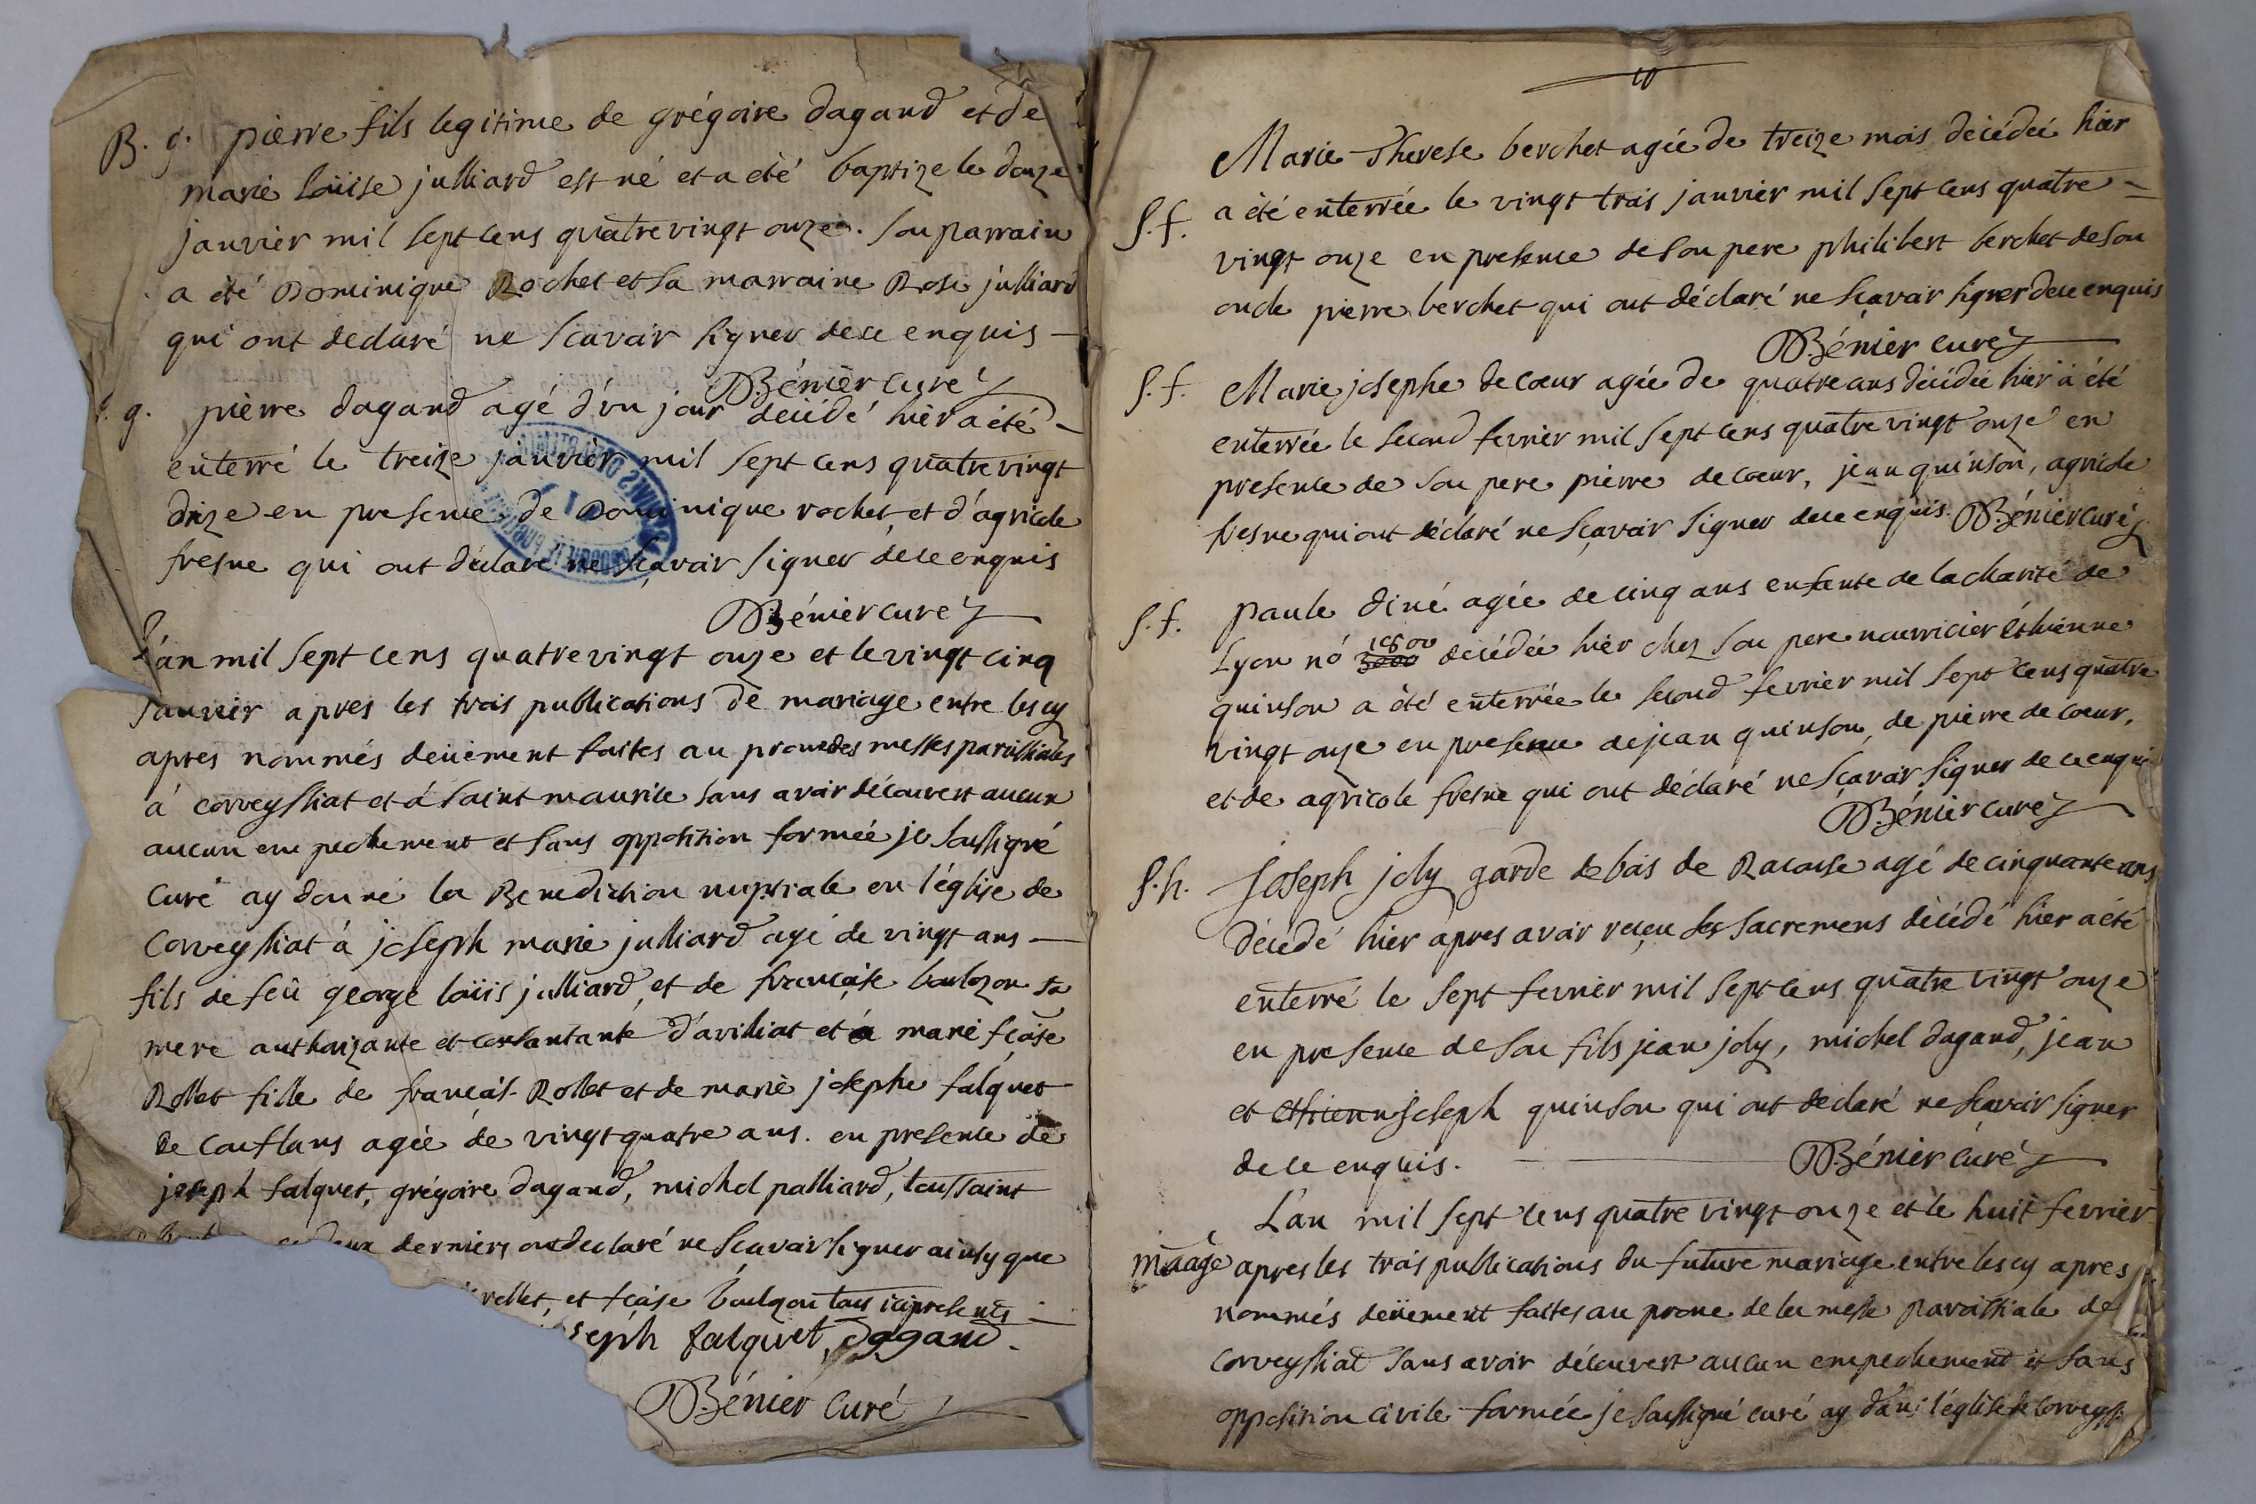 B. g. pierre fils legitime de grégoire dagand et de
marie loüise julliard est né et a été baptize le douze
janvier mil sept cens quatre vingt onze. son parrain
a été Dominique Rochet et sa marraine Rose julliard
qui ont declaré ne scavoir signer de ce enquis —
Bénier curé
g. pierre dagand agé d'un jour décédé hier a été
enterré le treize janvier mil sept cens quatre vingt
onze en presence de Dominique rochet et d'agricole
fresne qui ont déclaré ne sçavoir signer de ce enquis
Bénier curé
L'an mil sept cens quatre vingt onze et le vingt cinq
Janvier apres les trois publications de mariage entre les cy
apres nommés deüement faites au prone des messes paroissiales
à corveyssiat et à saint maurice sans avoir découvert aucun
aucun empechement et sans opposition formée je soussigné
curé ay donné la Benediction nuptiale en l'église de
Corveyssiat à joseph marie julliard agé de vingt ans —
fils de feü george loüis julliard et de françoise boulozon sa
mere authorizante et consantante d'avilliat et à marie fçoise
Rollet fille de françois Rollet et de marie josephe falquet
de Conflans agée de vingt quatre ans. en presence de
joseph falquet, grégoire dagand, michel palliard, toussaint
deux derniers ont declaré ne sçavoir signer ainsy que
rollet, et fçoise boulozon tous icy presents
seph falquet dagand
Bénier curé
10
Marie Therese berchet agée de treize mois décédée hier
S. f. a été enterrée le vingt trois janvier mil sept cens quatre
vingt onze en presence de son pere philibert berchet de son
oncle pierre berchet qui ont déclaré ne sçavoir signer de ce enquis
Bénier curé
S. f. Marie josephe de coeur agée de quatre ans décédée hier a été
enterrée le second fevrier mil sept cens quatre vingt onze en
presence de son pere pierre de coeur, jean quinson, agricole
fresne qui ont déclaré ne sçavoir signer de ce enquis. Bénier curé
S. f. paule diné agée de cinq ans enfante de la charité de
10800
Lyon nó 3000 décédée hier chez son pere nourricier éthienne
quinson a été enterrée le second fevrier mil sept cens quatre
vingt onze en presence de jean quinson, de pierre de coeur,
et de agricole fresne qui ont déclaré ne sçavoir signer de ce enqui
Bénier curé
S. h. Joseph joly garde de bois de Racouse agé de cinquante ans
décédé hier apres avoir reçeu les sacremens décédé hier a été
enterré le sept fevrier mil sept cens quatre vingt onze
en presence de son fils jean joly, michel dagand, jean
et joseph quinson qui ont declaré ne scavoir signer
de ce enquis. — Bénier curé
L'an mil sept cens quatre vingt onze et le huit fevrier
maage apres les trois publications du future mariage entre les cy apres
nommés deüement faites au prone de la messe paroissiale de
Corveyssiat sans avoir découvert aucun empechement et sans
opposition civile formée je soussigné curé ay l'église de Corveyssi